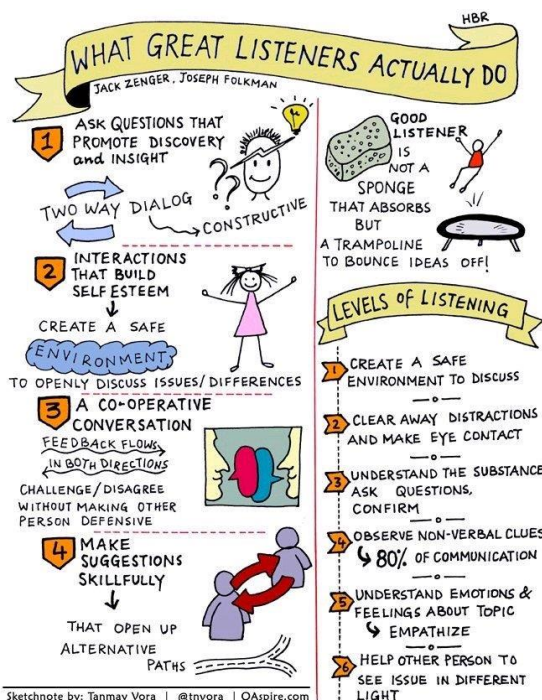 HBR
WHAT GREAT LISTENERS ACTUALLY DO
JACK ZENGER, JOSEPH FOLKMAN
1
ASK QUESTIONS THAT
PROMOTE DISCOVERY
and INSIGHT
??
TWO WAY DIALOG
CONSTRUCTIVE
2
INTERACTIONS
THAT BUILD
SELF ESTEEM
CREATE A SAFE
ENVIRONMENT
TO OPENLY DISCUSS ISSUES/DIFFERENCES
3
A CO-OPERATIVE
CONVERSATION
FEEDBACK FLOWS
IN BOTH DIRECTIONS
CHALLENGE/DISAGREE
WITHOUT MAKING OTHER
PERSON DEFENSIVE
4
MAKE
SUGGESTIONS
SKILLFULLY
THAT OPEN UP
ALTERNATIVE
PATHS
GOOD
LISTENER
IS
NOT A
SPONGE
THAT ABSORBS
BUT
A TRAMPOLINE
TO BOUNCE IDEAS OFF!
LEVELS OF LISTENING
1
CREATE A SAFE
ENVIRONMENT TO DISCUSS
2
CLEAR AWAY DISTRACTIONS
AND MAKE EYE CONTACT
3
UNDERSTAND THE SUBSTANCE
ASK QUESTIONS,
CONFIRM
4
OBSERVE NON-VERBAL CLUES
80% OF COMMUNICATION
5
UNDERSTAND EMOTIONS &
FEELINGS ABOUT TOPIC
EMPATHIZE
6
HELP OTHER PERSON TO
SEE ISSUE IN DIFFERENT
LIGHT
Sketchnote by: Tanmay Vora | @tnvora | QAspire.com